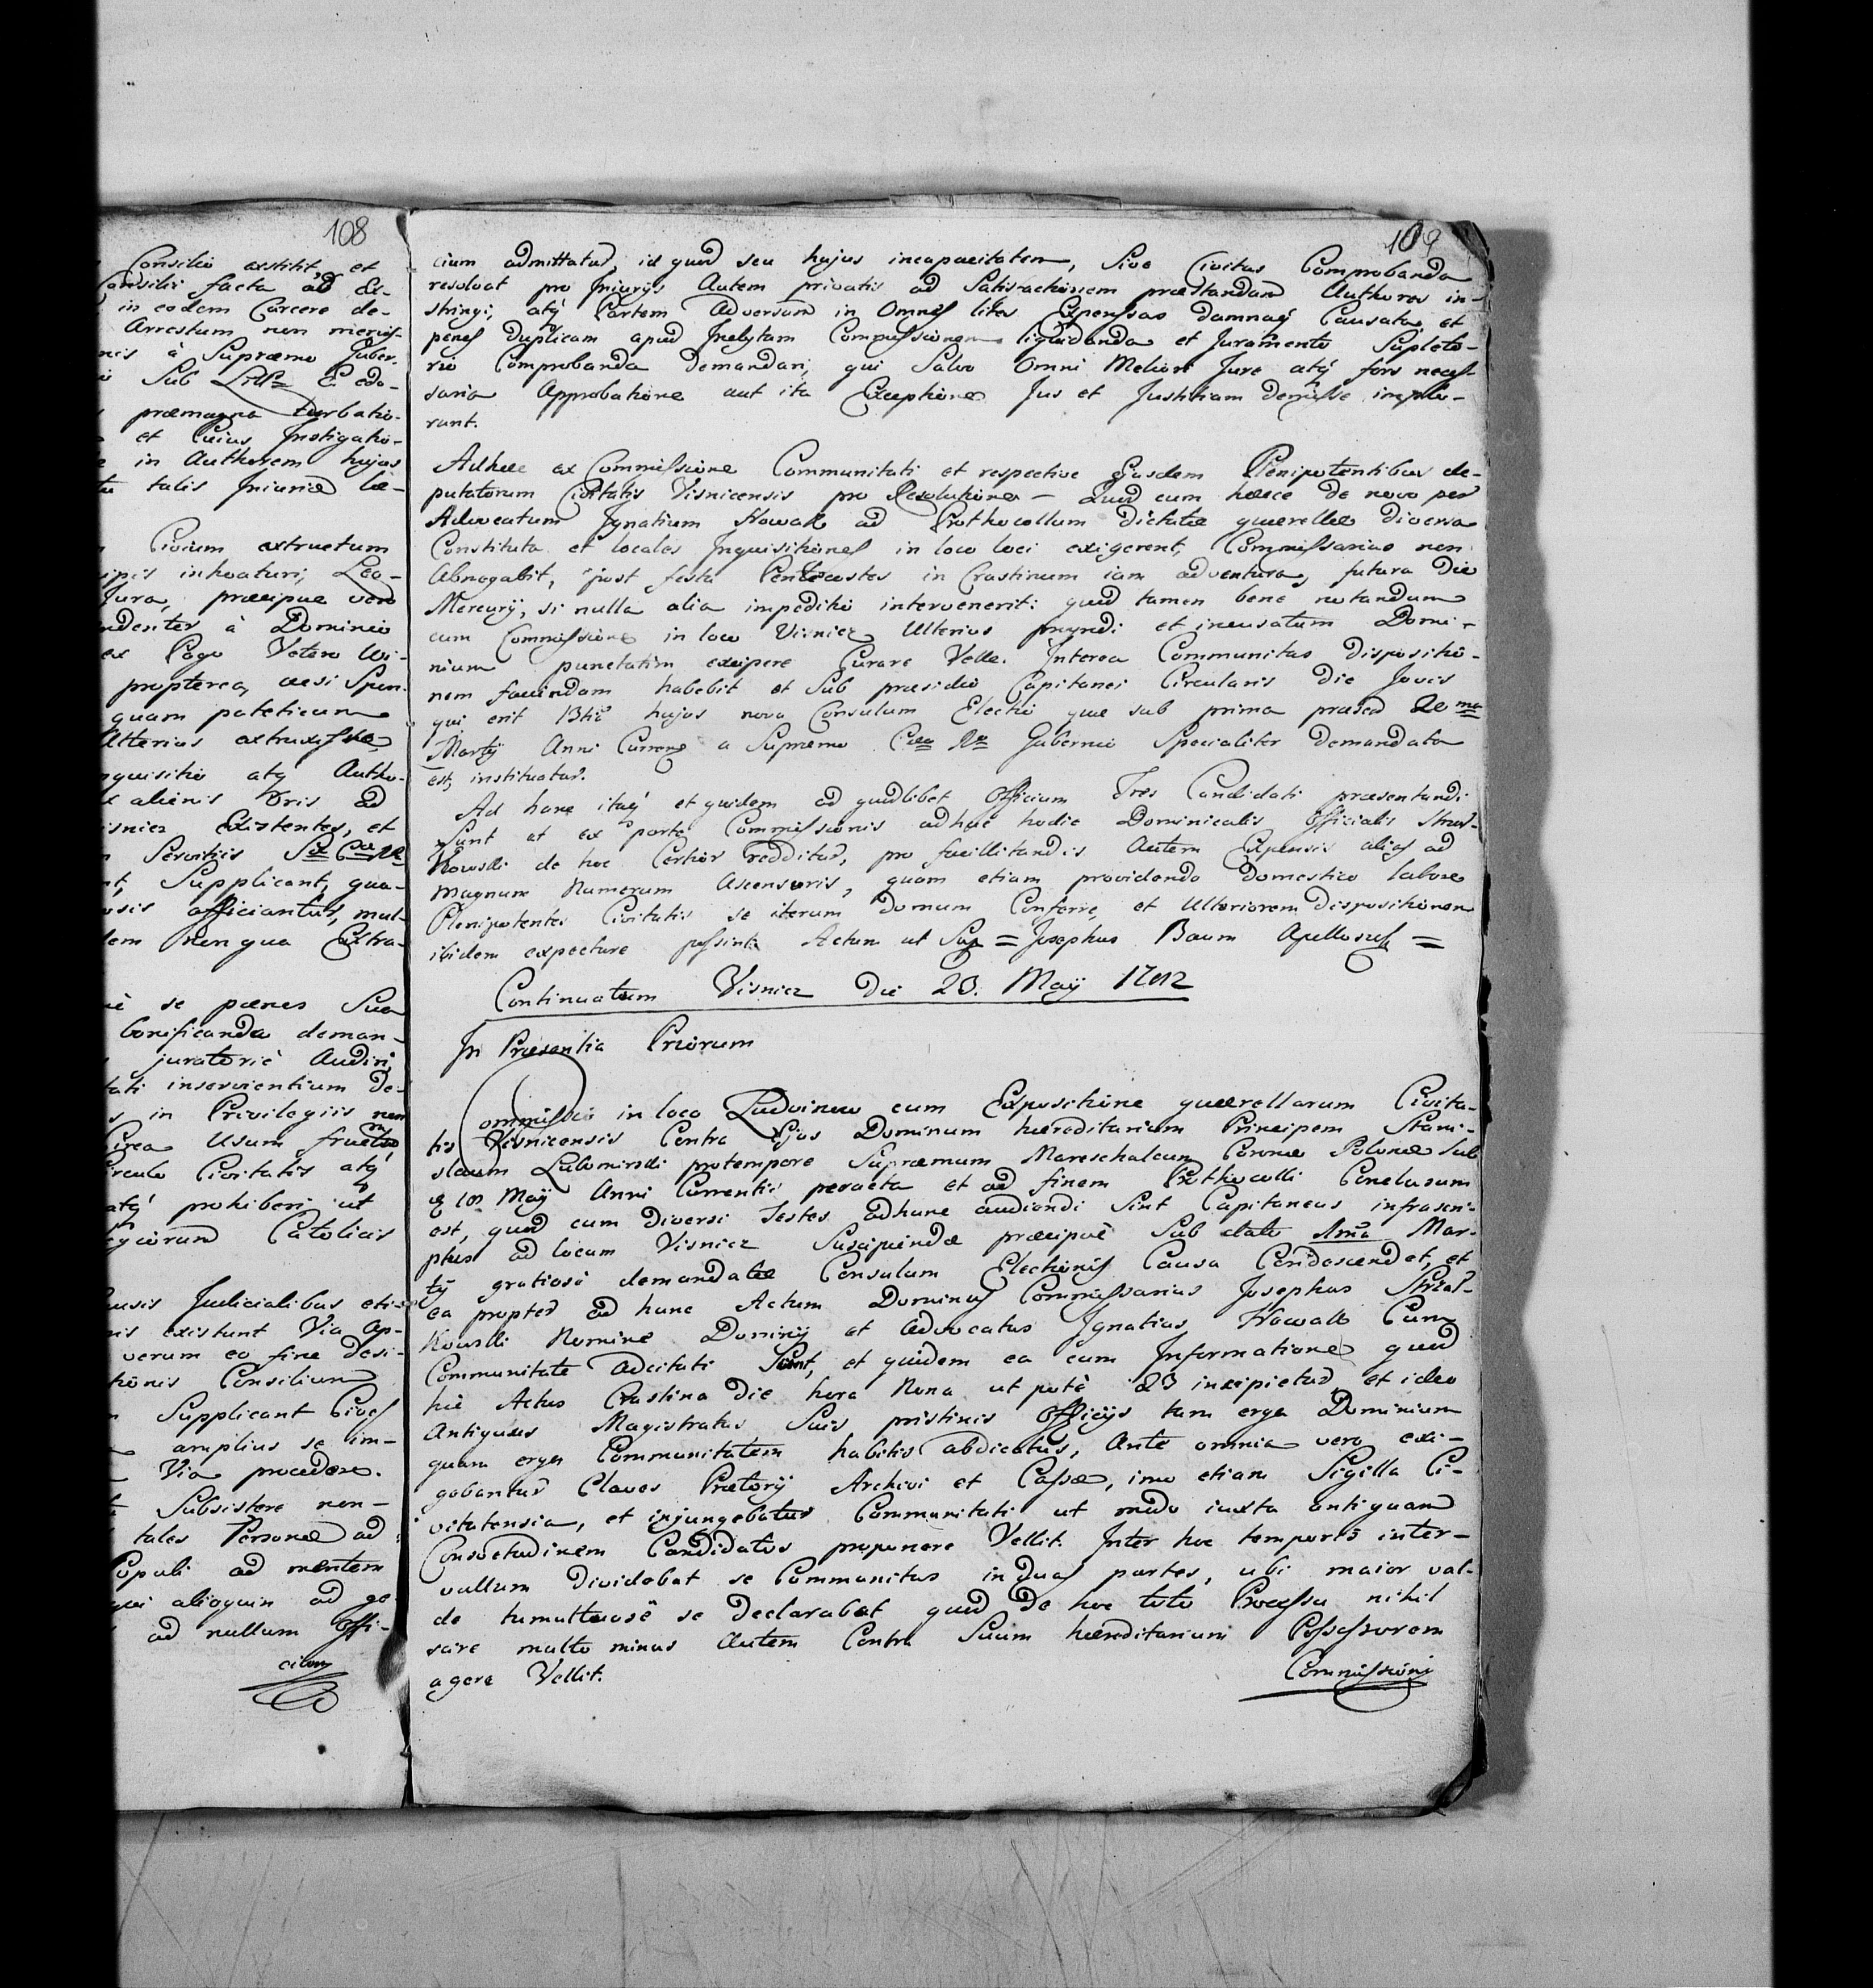 108
Consilio extitit, et
Consilii facta ad Es-
in eodem Carcere de-
Arrestum non meruis-
nis à Supremo Guber-
Sub Littr E edo-
præmagna turbatio-
et Cuius Instigatio-
in Authorem hujus
talis Injuriæ læ-
Civium extructum
inhoaturi, Leo-
Jura, præcipue vero
à Dominio
ex Pago Vetero Wi-
propterea, ac si Spon-
quam pateticum
Ulterius extruxisse
nquisitio atq Autho-
alienis Oris ad
Existentes, et
Servitiis
Supplicant, qua-
officiantur, mul-
nen qua Extra-
se pænes Sua
bonificanda deman-
juratorié Audiri,
inservientium De-
in Privilegiis non
Circa Usum fructus
Circulo Civitatis atq
atq prohiberi ut
Catolicis
Judicialibus eti-
existunt Via Ap-
verum eo fine desi-
Consilium
Supplicant Cives
amplius se im-
Via procedere.
Subsistere non-
tales Personæ ad
Populi ad mentem
alioquin ad ge-
ad nullum Offi-
cium
109
cium admittatur, id quod seu hujus incapacitatem, Sive Civitas Comprobanda
resolvat pro Injuriis Autem privatis ad Satisfactionem præstandam Authores in-
stringi, atq Partem Adversam in Omnes lites Expensas damnaq Causata, et
penes Duplicam apud Inclytam Commissionem liquidanda et Juramento Supleto-
rio Comprobanda Demandari, qui Salvo Omni Meliori Jure atq fors neces-
saria Approbatione aut ita Exceptione Jus et Justitiam demisse implo-
rant.
Adhuc ex Commissione Communitati et respective Ejusdem Plenipotentibus de-
putatorum Civitatis Visnicensis pro Resolutione – Quod cum hæcce de novo per
Advocatum Ignatium Nowak ad Prothocollum dictatæ querellæ diversa
Constituta et locales Inquisitiones in loco loci exigerent, Commissarius non
Abnegabit, post festa Pentecostes in Crastinum iam adventura, futura Die
Mercurÿ, si nulla alia impeditio intervenerit: quod tamen bene notandum
cum Commissione in loco Visnicz Ulterius progredi et incusatum Domi-
nium punctatim excipere Curare Velle. Interea Communitas dispositio-
nem faciendam habebit et Sub præsidio Capitanei Circularis Die Jovis
qui erit hujus nova Consulum Electio quæ sub prima
Martÿ Anni Currens a Supremo Gubernio Specialiter demandata
est, instituatur.
Ad hanc itaq et quidem ad quodlibet Officium Tres Candidati præsentandi
Sunt et ex parte Commissionis adhuc hodie Dominicalis Officialis Strzal-
kowski de hoc Certior redditur, pro facillitandis Autem Expensis alias ad
magnum Numerum Ascensuris, quam etiam providendo domestico labore
Plenipotentes Civitatis se iterum domum Conferre, et Ulteriorem Dispositionem
ibidem expectare possint. Actum ut Sup = Josephus Baum Apellosuss =
Continuatum Visnicz Die 23. Maÿ 1782
In Præsentia Priorum
Commissio in loco cum Expositione querellarum Civita-
tis Visnicensis Contra Ejus Dominum hæreditarium Principem Stani-
slaum Lubomirski protempore Supræmum Mareschalcum Coronæ Polonæ Sub
18 Maÿ Anni Currentis peracta et ad finem Prothocolli Conclusum
est, quod cum Diversi Testes adhunc audiendi Sint Capitaneus infrascri-
ptus ad locum Visnicz Suscipiendæ præcipuè Sub dato Mar-
tÿ gratiosè demandatæ Consulum Electionis Causa Condescendet, et
ea propter ad hunc Actum Dominus Commissarius Josephus Strzal-
kowski Nomine Dominÿ et Advocatus Ignatius Nowak Cum
Communitate adcitati Sunt, et quidem ea cum Informatione quod
hic Actus Crastina Die hora Nona ut putè 23 incipietur, et ideo
Antiquus Magistratus Suis pristinis Officÿs tam erga Dominium
quam erga Communitatem habitis abdicatus, Ante omnia vero exi-
gebantur Claves Prætorÿ Archivi et Cassæ, imo etiam Sigilla Ci-
vitatensia, et injungebatur Communitati ut modo iuxta antiquam
Consvetudinem Candidatos proponere Vellit. Inter hoc temporis inter-
vallum Dividebat se Communitas in Duas partes, ubi maior val-
de tumultuosè se Declarabat quod De hoc toto Processu nihil
scire multo minus Autem Contra Suum hæreditarium Possessorem
agere Vellit.
Commissioni